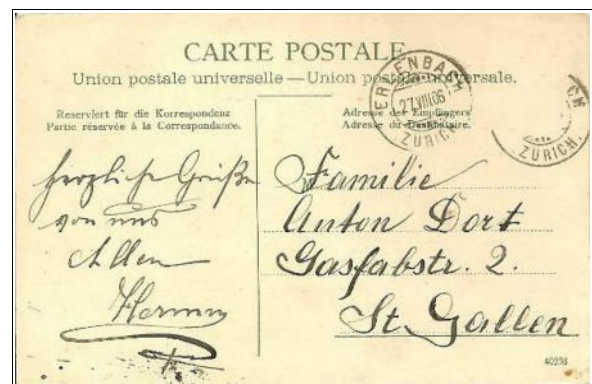 CARTE POSTALE
Union postale universelle — Union postale universale.
Reserviert für die Korrespondenz
Partie réservée à la Correspondance.
Adresse des Empfängers
Adresse du Destinataire.
ERLENBACH
27.VIII.06
ZÜRICH
ZÜRICH.
herzliche Grüße
von uns
Allen
Familie
Anton Dort
Gasfabstr. 2.
St. Gallen
40236